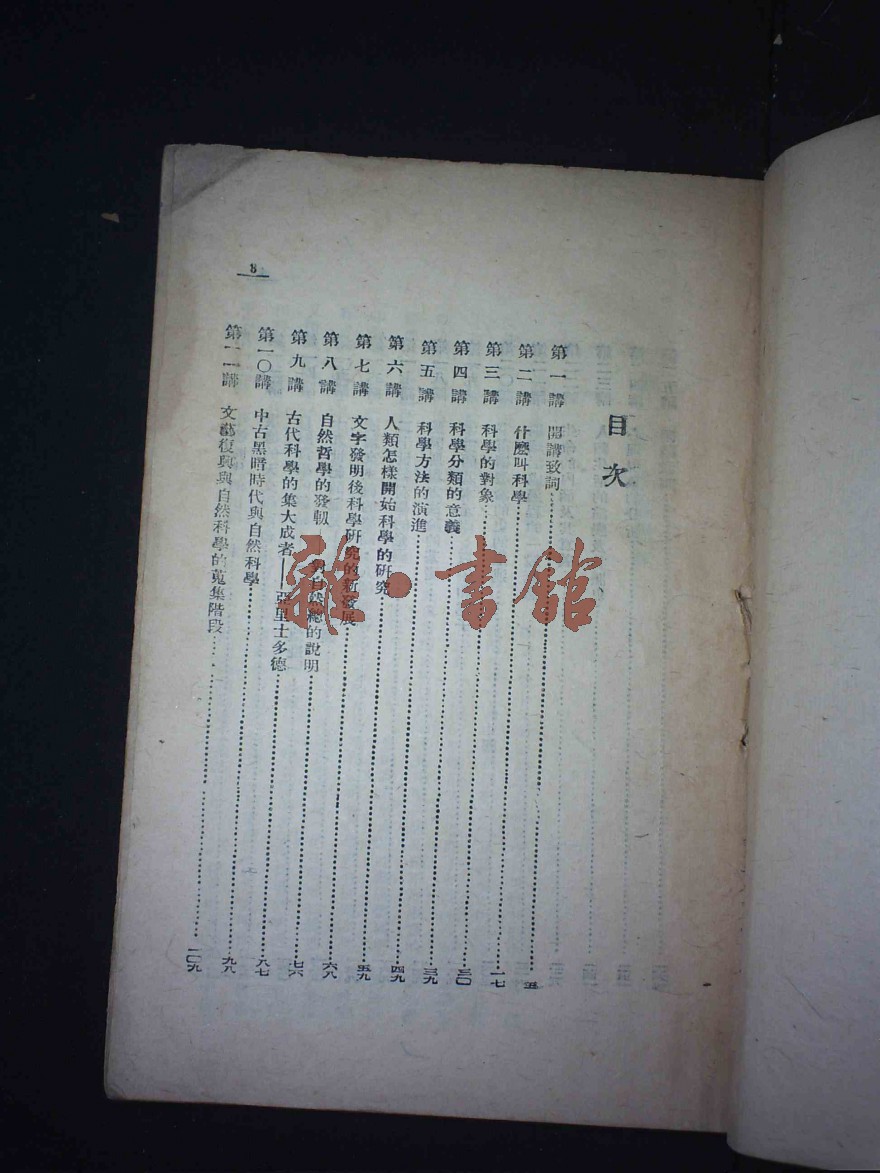 目次
第一講 開講致詞……五
第二講 什麼叫科學……一七
第三講 科學的對象……三〇
第四講 科學分類的意義……三九
第五講 科學方法的演進……四九
第六講 人類怎樣開始科學的研究……五九
第七講 文字發明後科學研究的新發展……六八
第八講 自然哲學的發軔——對自然總的說明……七六
第九講 古代科學的集大成者——亞里士多德……八七
第一〇講 中古黑暗時代與自然科學……九八
第一一講 文藝復興與自然科學的蒐集階段……一〇九
雜·書館